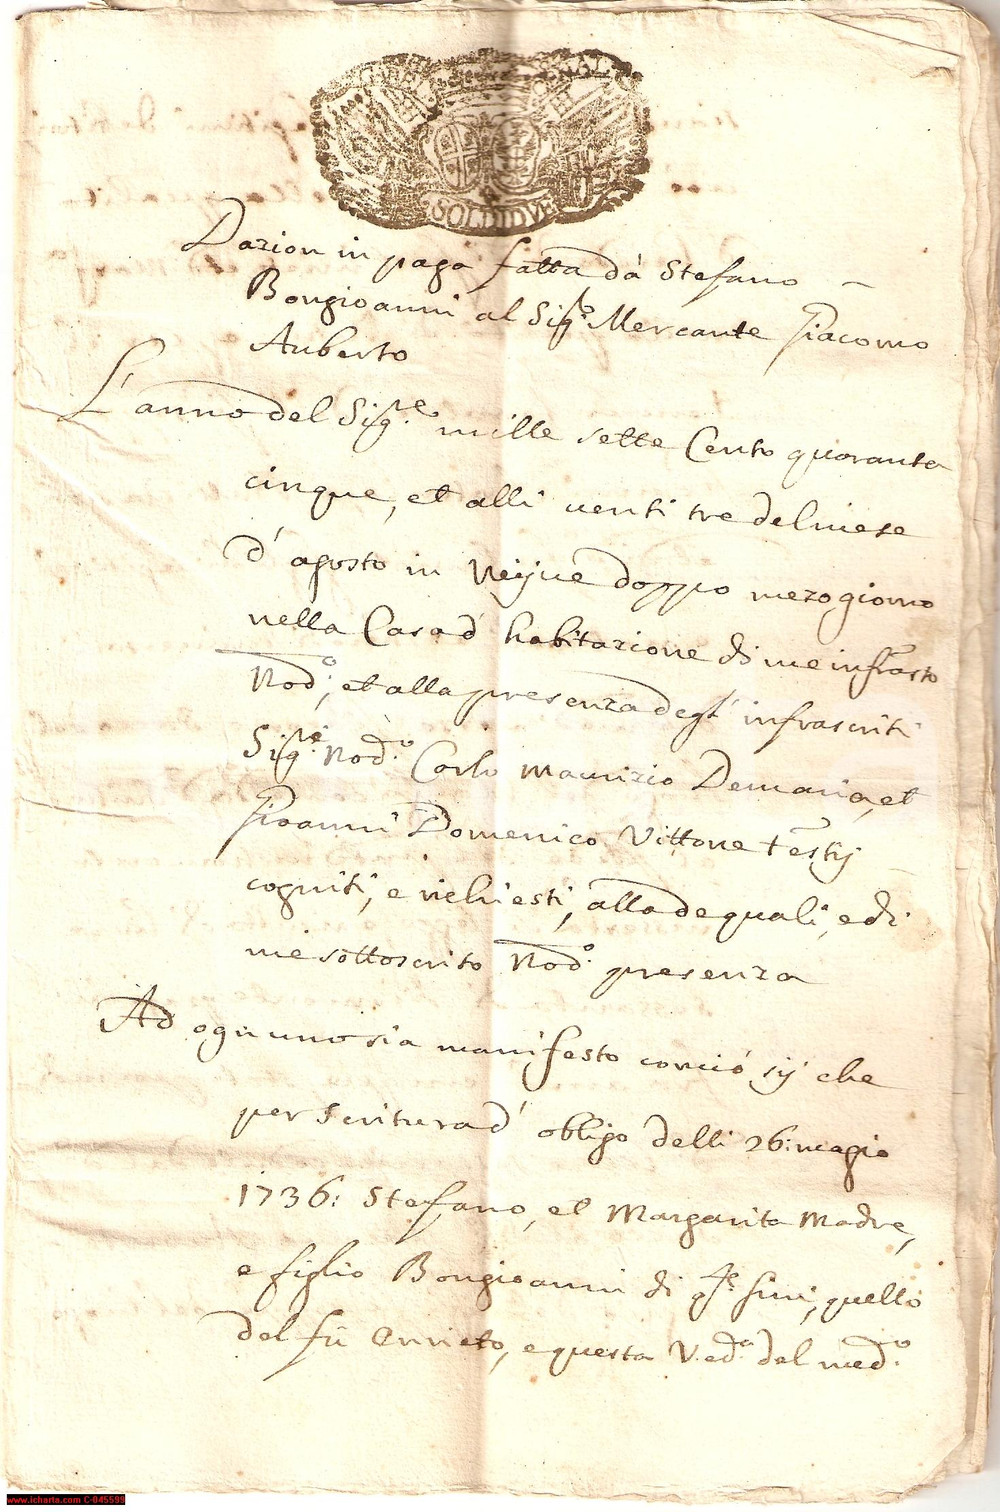 SOLDI DVE
Dazion in paga fatta dà Stefano
Bongioanni al Sig.^o Mercante Giacomo
Auberto
L'anno del Sig.^re mille sette Cento quaranta
cinque, et alli venti tre del mese
d'agosto in doppo mezogiorno
nella Casa d'habitazione di me infrãsto
Nod.^o, et alla presenza degl'infrascriti
Sig.^ri Nod.^o Carlo Maurizio Demaria, et
Gioanni Domenico Vittone testij
cogniti, e richiesti, alla de quali, e di
me sottoscrito Nod.^o presenza
Ad ogn'uno sia manifesto conciò sij che
per Scritura d'obligo delli 26: magio
1736: Stefano, et Margarita Madre,
e figlio Bongioanni di fini, quello
del fù e questa Ved.^a del med.^o
www.icharta.com C-045599